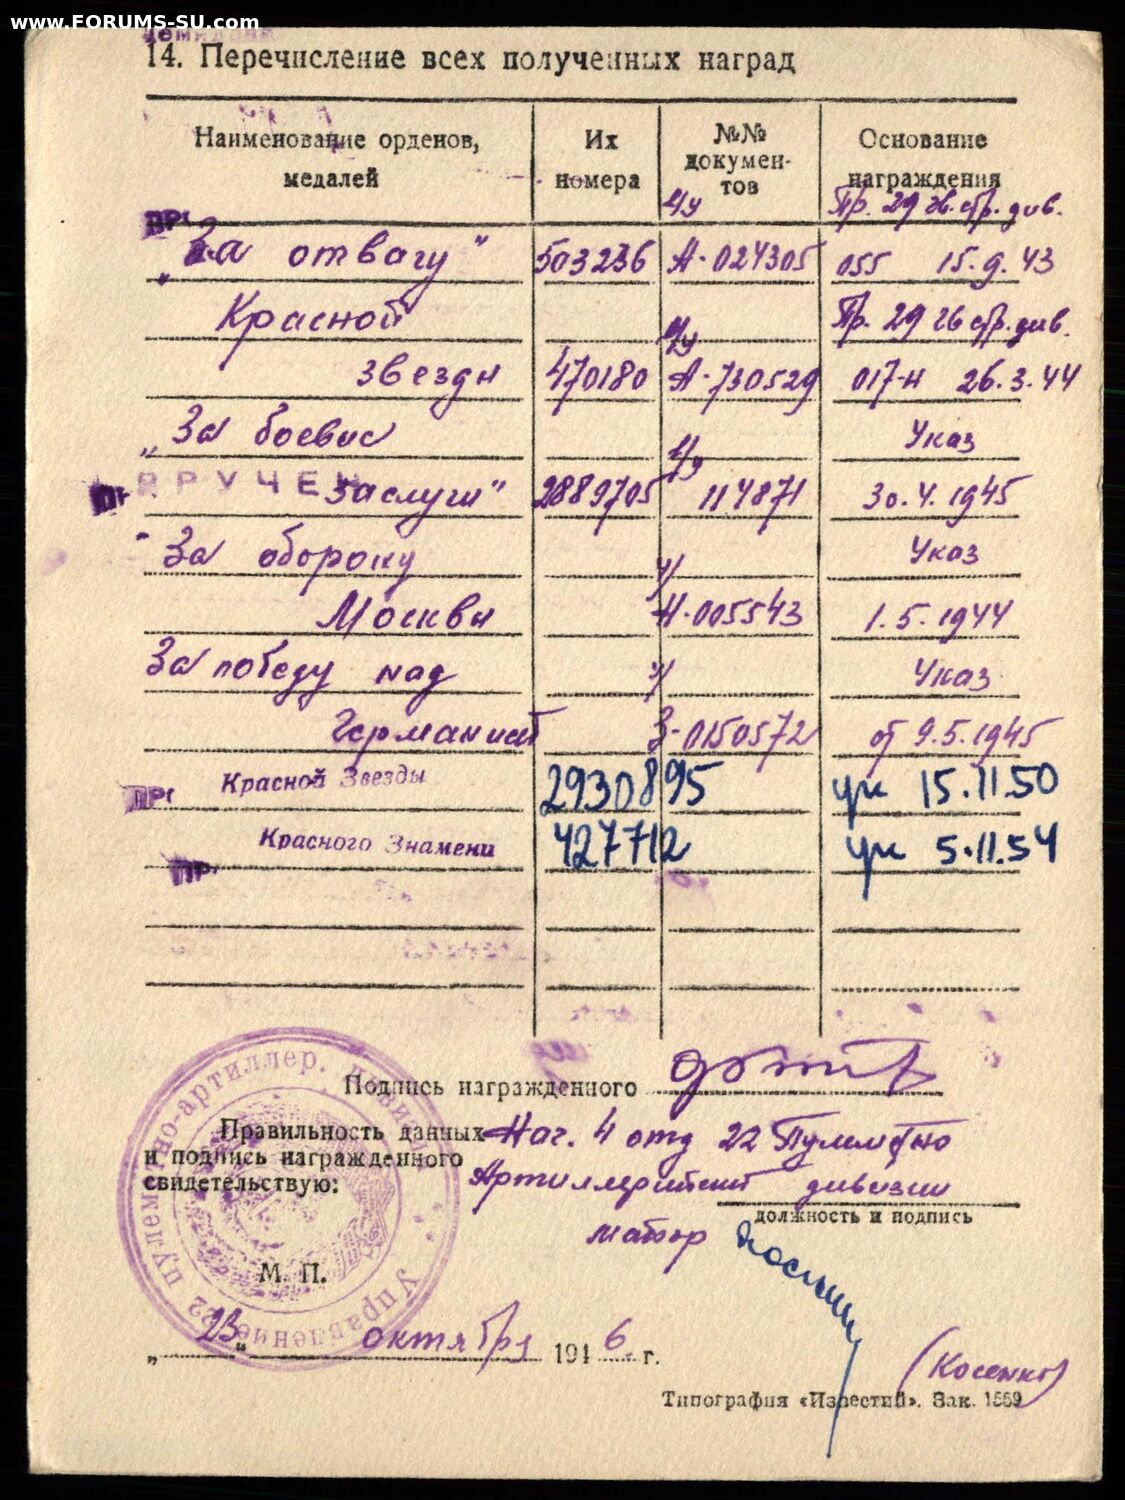 www.FORUMS-SU.com
14. Перечисление всех полученных наград
Наименование орденов, медалей
Их номера
№№ документов
Основание награждения
Пр. 29 гв. стр. див.
„За отвагу" 503236 А-024305 055 15.9.43
Красной Пр. 29 гв стр. див.
звезды 470180 А-730529 017-н 26.3.44
„За боевые Указ
ВРУЧЕН
заслуги" 2889705 114871 30.4.1945
За оборону Указ
Москвы Н-005543 1.5.1944
За победу над Указ
Германией З-0150572 от 9.5.1945
Красной Звезды 2930895 ук 15.11.50
Красного Знамени 427712 ук 5.11.54
Подпись награжденного
Правильность данных Нач. 4 отд 22 Пулеметно
и подпись награжденного Артиллерийской дивизии
свидетельствую:
должность и подпись
майор
М. П.
Управление 22 пулеметно-артиллер. дивизии
„23" октября 1946 г.
(Косенко)
Типография «Известий». Зак. 1569